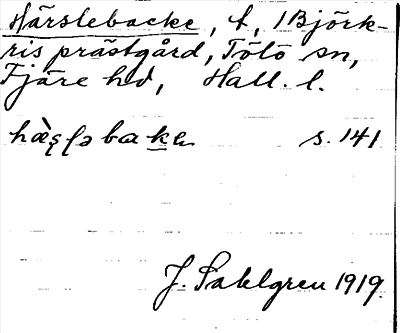 Härslebacke, t, i Björk-
ris prästgård, Tölö sn,
Fjäre hd, Hall. l.
s. 141
J. Sahlgren 1919